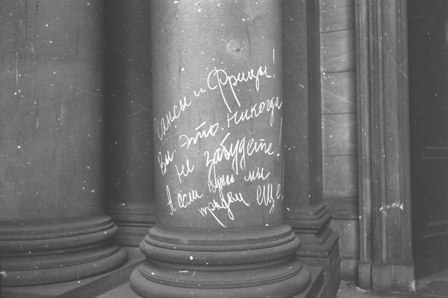 Гансы и Фрицы!
Вы это никогда
не забудете.
А если нужно мы
придем еще.